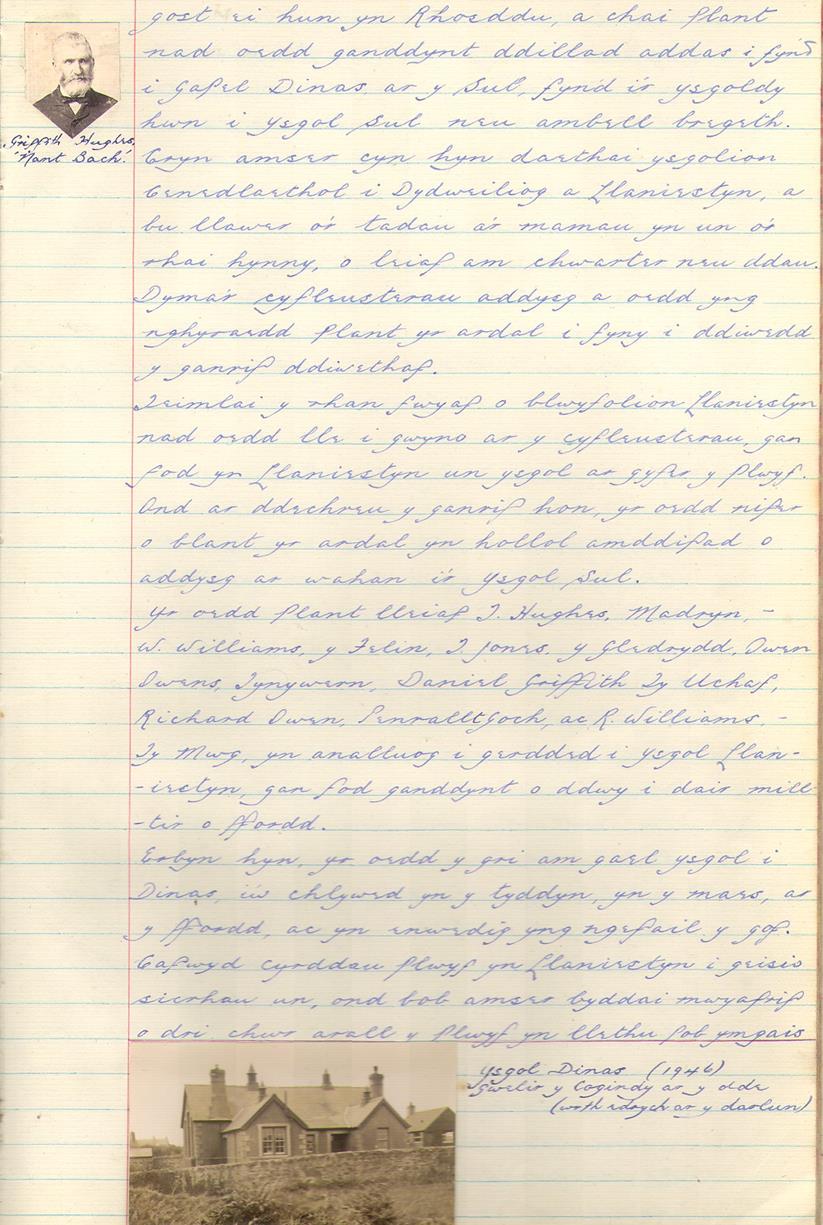 gost ei hun yn Rhosddu, a chai plant
nad oedd ganddynt ddillad addas i fynd
i Gapel Dinas ar y Sul, fynd i'r ysgoldy
hwn i ysgol Sul neu ambell bregeth.
Griffith Hughes,
'Nant Bach'.
Cryn amser cyn hyn daethai ysgolion
Cenedlaethol i Dydweiliog a Llaniestyn, a
bu llawer o'r tadau a'r mamau yn un o'r
rhai hynny, o leiaf am chwarter neu ddau.
Dyma'r cyfleusterau addysg a oedd yng
nghyraedd plant yr ardal i fyny i ddiwedd
y ganrif ddiwethaf.
Teimlai y rhan fwyaf o blwyfolion Llaniestyn
nad oedd lle i gwyno ar y cyfleusterau, gan
fod yn Llaniestyn un ysgol ar gyfer y plwyf.
Ond ar ddechreu y ganrif hon, yr oedd nifer
o blant yr ardal yn hollol amddifad o
addysg ar wahan i'r Ysgol Sul.
Yr oedd plant lleiaf J. Hughes, Madryn, -
W. Williams, y Felin, J. Jones, y Gledrydd, Owen
Owens, Tynywern, Daniel Griffith Ty Uchaf,
Richard Owen, Penrallt Goch, ac R. Williams, -
Ty Mwg, yn analluog i gerdded i Ysgol Llan-
-iestyn, gan fod ganddynt o ddwy i dair mill-
-tir o ffordd.
Erbyn hyn, yr oedd y gri am gael ysgol i
Dinas, i'w chlywed yn y tyddyn, yn y maes, ar
y ffordd, ac yn enwedig yng ngefail y gof.
Cafwyd cyrddau plwyf yn Llaniestyn i geisio
sicrhau un, ond bob amser byddai mwyafrif
o dri chwr arall y plwyf yn llethu pob ymgais
Ysgol Dinas (1946)
Gwelir y Cogindy ar y dde
(wrth edrych ar y darlun)